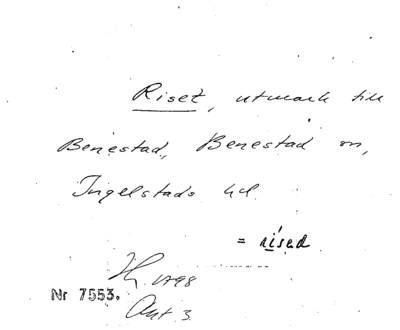 Riset, utmark till
Benestad, Benestad sn,
Ingelstads hd.
= rísed
H 1798
Nr 7553.
Akt 3.